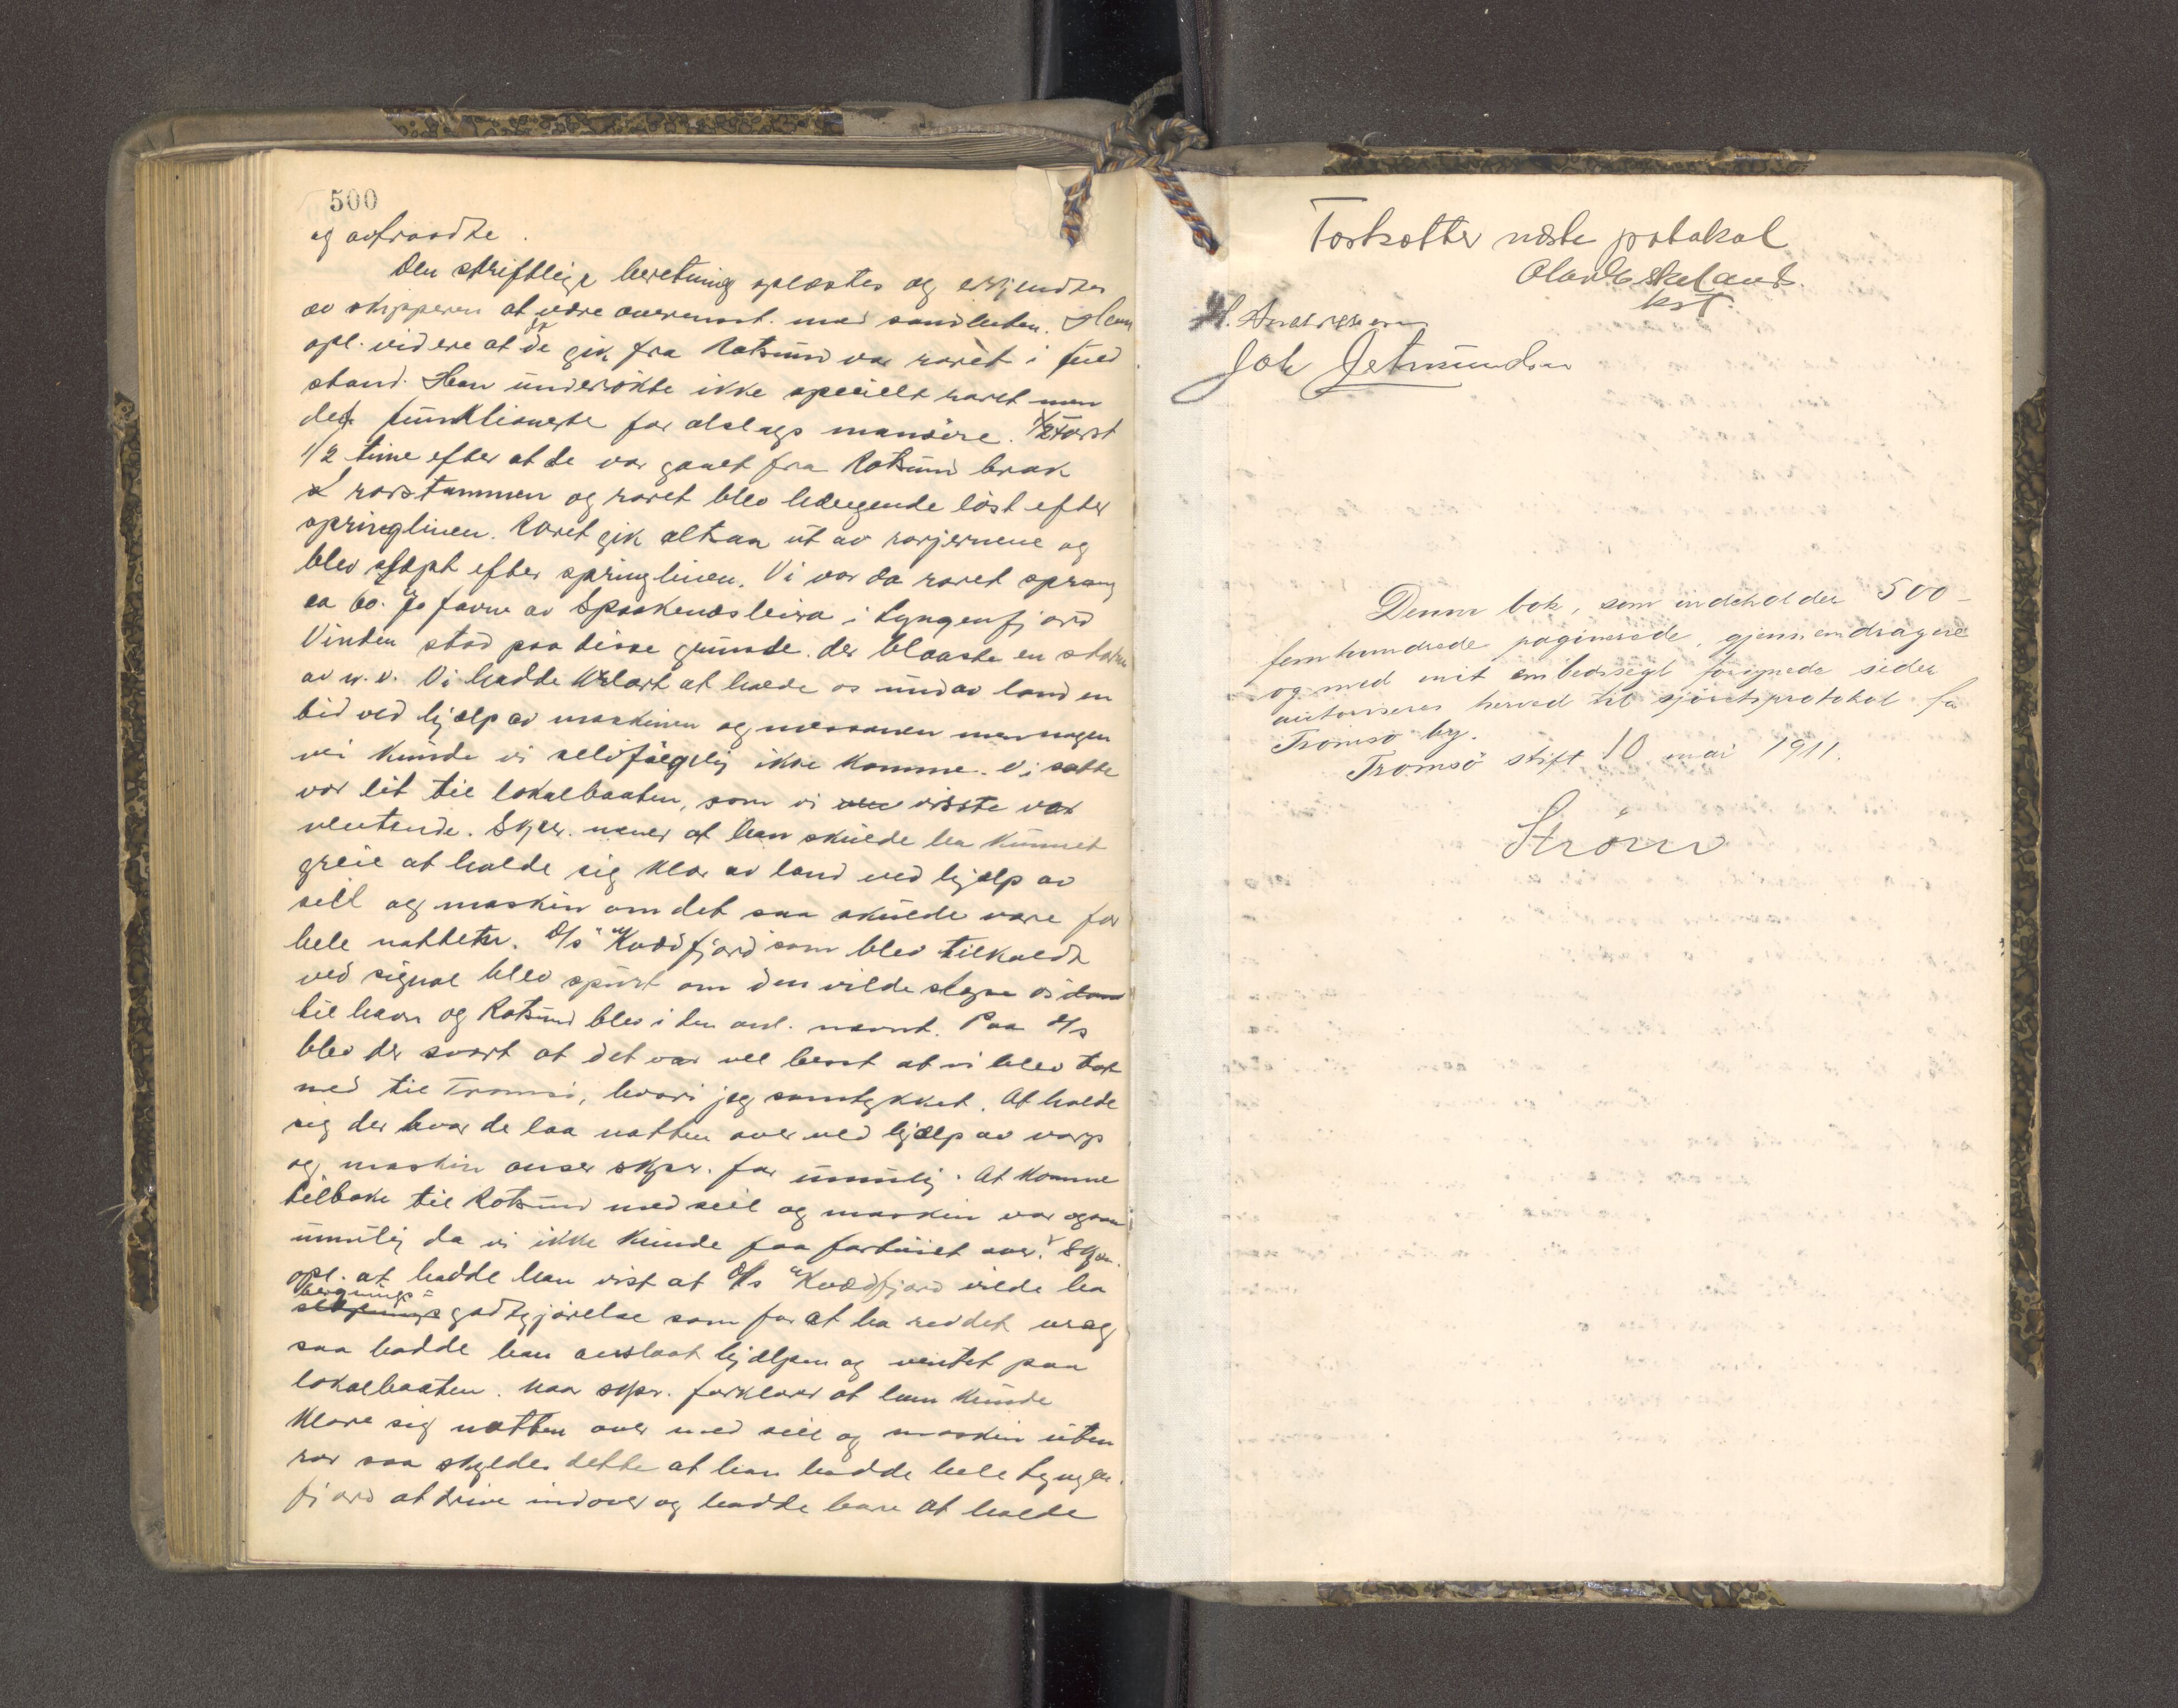 500
og avtraadte.
Den skriftlige beretning oplæstes og erkjendtes
av skipperen at være overensst. med sandheten. Han
opl. videre at da de gik fra Rotsund var roret i fuld
stand. Han undersökte ikke specielt roret men
det funktionerte for alslags manövre. Först
1/2 time efter at de var gaaet fra Rotsund brak
rorstammen og roret blev hængende löst efter
springlinen. Roret gik altsaa ut av rorjernene og
blev slæpt efter springlinen. Vi var da roret sprang
ca 60. 70 favne av Spaakenæsleira i Lyngenfjord
Vinden stod paa disse grunde. der blaaste en storm
av n.v. Vi hadde klart at holde os undav land en
tid ved hjælp av maskinen og mesanen men nogen
vei kunde vi selvfölgelig ikke komme. Vi satte
vor lit til lokalbaaten, som vi visste var
ventende. Skpr. mener at han skulde ha kunnet
greie at holde sig klar av land ved hjælp av
seil og maskin om det saa skulde være for
hele natten. D/s "Kvædfjord" som blev tilkaldt
ved signal blev spurt om den vilde slæpe os
til havn og Rotsund blev i den anl. nævnt. Paa d/s
blev der svart at det var vel best at vi blev tat
med til Tromsö, hvori jeg samtykket. At holde
sig der hvor de laa natten over ved hjælp av varp
og maskin anser skpr. for umulig. At komme
tilbake til Rotsund med seil og maskin var ogsaa
umulig da vi ikke kunde faa fartöiet over. Skpr.
opl. at hadde han vist at d/s "Kvædfjord" vilde ha
bergnings=
godtgjörelse som for at ha reddet vrag
saa hadde han avslaat hjælpen og ventet paa
lokalbaaten. Naar skpr. forklarer at han kunde
klare sig natten over med seil og maskin uten
ror saa skyldes dette at han hadde hele Lyngen-
fjord at drive indover og hadde bare at holde
Fortsætter næste protokol
Olav Eskeland
kst.
H. Andreassen
Joh Jetmundsen
Denne bok, som indeholder 500-
femhundrede paginerede, gjennemdragne
og med mit embedssegl forsynede sider
autoriseres herved til sjöretsprotokol for
Tromsö by.
Tromsö stift 10 mai 1911.
Ström